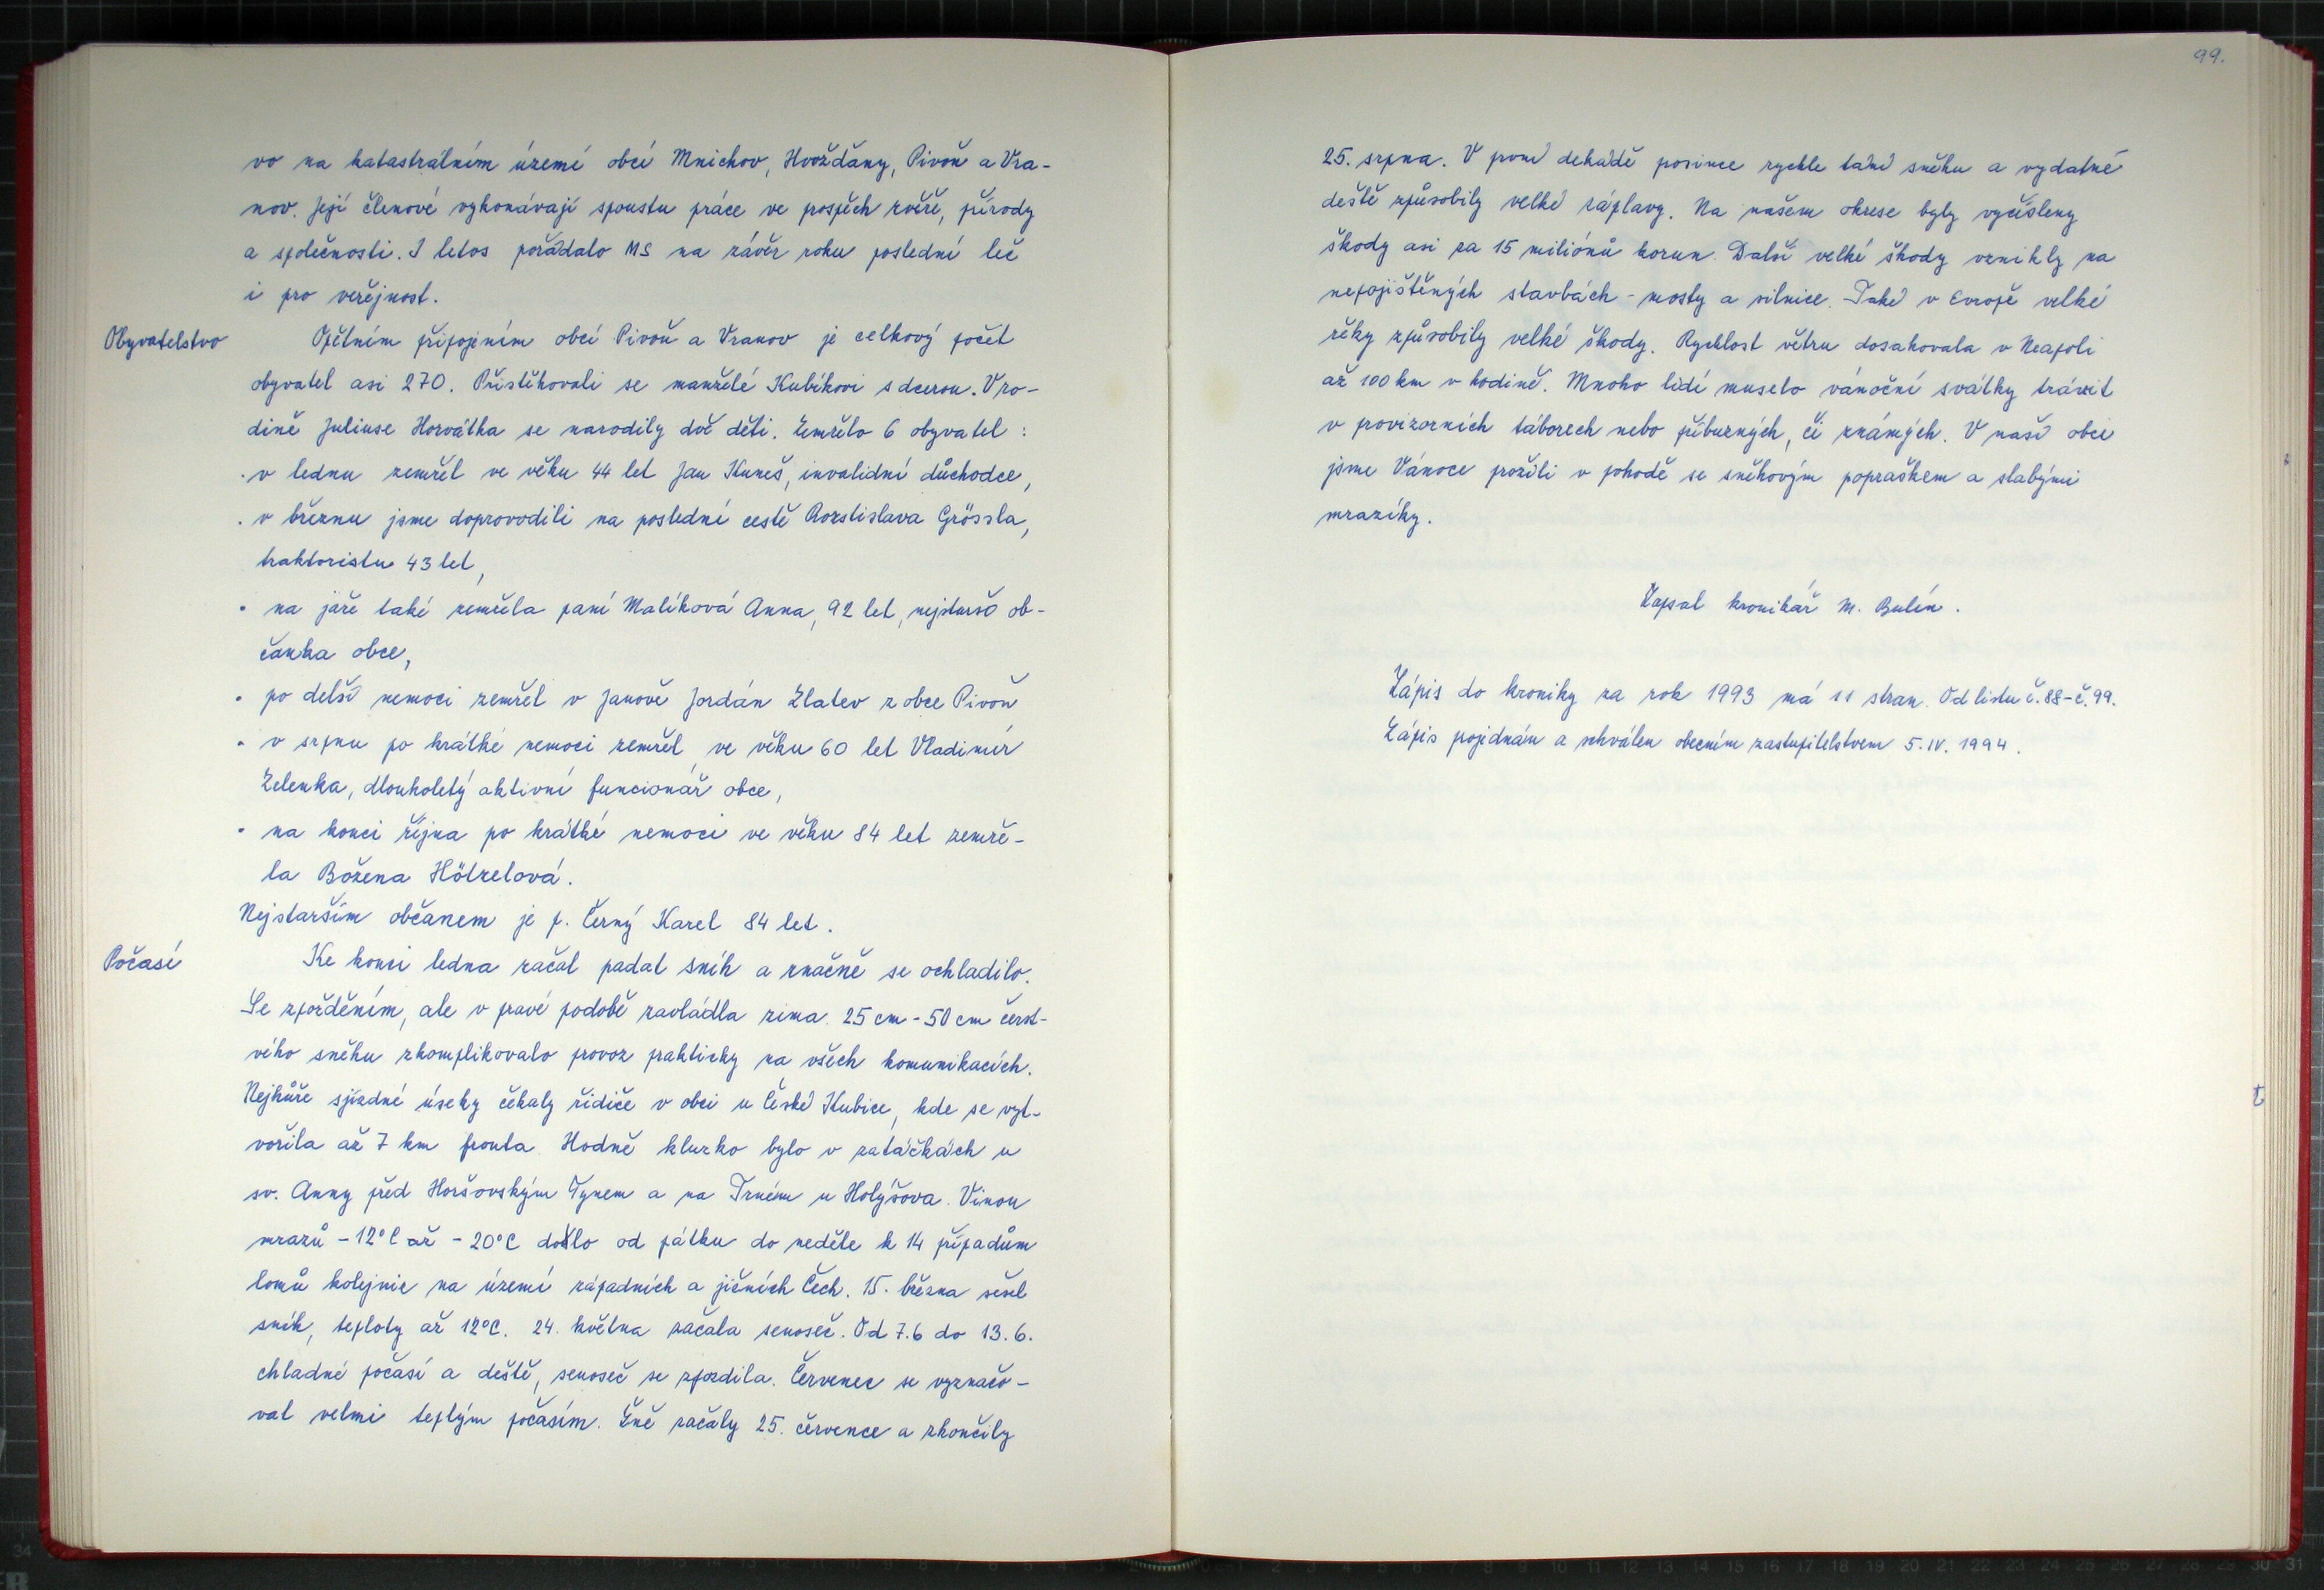 vo na katastrálním území obcí Mnichov, Hvožďany, Pivoň a Vra-
nov. Její členové vykonávají spoustu práce ve prospěch zvěře, přírody
a společnosti. I letos pořádalo MS na závěr roku poslední leč
i pro veřejnost.
Obyvatelstvo
Opětním připojením obcí Pivoň a Vranov je celkový počet
obyvatel asi 270. Přistěhovali se manželé Kubíkovi s dcerou. V ro-
dině Juliuse Horvátha se narodily dvě děti. Zemřelo 6 obyvatel :
· v lednu zemřel ve věku 44 let Jan Kuneš, invalidní důchodce,
· v březnu jsme doprovodili na poslední cestě Rorstislava Grössla,
traktoristu 43 let,
· na jaře také zemřela paní Malíková Anna, 92 let, nejstarší ob-
čanka obce,
· po delší nemoci zemřel v Janově Jordán Zlatev z obce Pivoň
· v srpnu po krátké nemoci zemřel, ve věku 60 let Vladimír
Zelenka, dlouholetý aktivní funcionář obce,
· na konci října po krátké nemoci ve věku 84 let zemře-
la Božena Hötzelová.
Nejstarším občanem je p. Černý Karel 84 let.
Počasí
Ke konci ledna začal padat sníh a značně se ochladilo.
Se zpožděním, ale v pravé podobě zavládla zima. 25 cm - 50 cm čerst-
vého sněhu zkomplikovalo provoz prakticky na všech komunikacích.
Nejhůře sjízdné úseky čekaly řidiče v obci u České Kubice, kde se vyt-
vořila až 7 km fronta. Hodně kluzko bylo v zatáčkách u
sv. Anny před Horšovským Týnem a na Trném u Holýšova. Vinou
mrazů - 12°C až - 20°C došlo od pátku do neděle k 14 případům
lomů kolejnic na území západních a jižních Čech. 15. března sešel
sníh, teploty až 12°C. 24. května začala senoseč. Od 7.6 do 13.6.
chladné počasí a deště, senoseč se zpozdila. Červenec se vyznačo-
val velmi teplým počasím. Žně začaly 25. července a skončily
99.
25. srpna. V první dekádě posince rychle tání sněhu a vydatné
deště způsobily velké záplavy. Na našem okrese byly vyčísleny
škody asi za 15 miliónů korun. Další velké škody vznikly na
nepojištěných stavbách - mosty a silnice. Také v Evropě velké
řeky způsobily velké škody. Rychlost větru dosahovala v Neapoli
až 100 km v hodině. Mnoho lidí muselo vánoční svátky trávit
v provizorních táborech nebo příbuzných, či známých. V naší obci
jsme Vánoce prožili v pohodě se sněhovým popraškem a slabými
mrazíky.
Zapsal kronikář M. Bulín.
Zápis do kroniky za rok 1993 má 11 stran. Od listu č. 88 - č. 99.
Zápis pojednán a schválen obecním zastupitelstvem 5. IV. 1994.